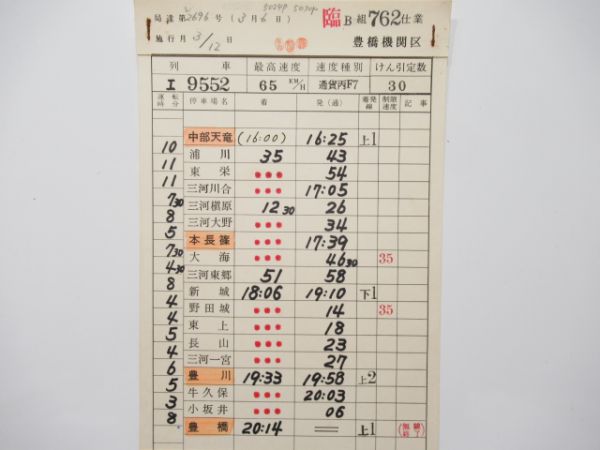 局達第2696号 (3月6日) 5024P 5030P 臨B組762仕業
施行月3/12日 豊橋機関区
列車 最高速度 速度種別 けん引定数
エ9552 65KM/H 通貨丙F7 30
運転時分 停車場名 着 発(通) 着発線 制限速度 記事
中部天竜 (16:00) 16:25 上1
10
浦川 35 43
11
東栄 ••• 54
11
三河川合 ••• 17:05
7 30
三河槇原 12 30 26
8
三河大野 ••• 34
5
本長篠 ••• 17:39
7 30
大海 ••• 46 30 35
4 30
三河東郷 51 58
8
新城 18:06 19:10 下1
4
野田城 ••• 14 35
4
東上 ••• 18
5
長山 ••• 23
4
三河一宮 ••• 27
6
豊川 19:33 19:58 上2
5
牛久保 ••• 20:03
3
小坂井 ••• 06
8
豊橋 20:14 = 上1